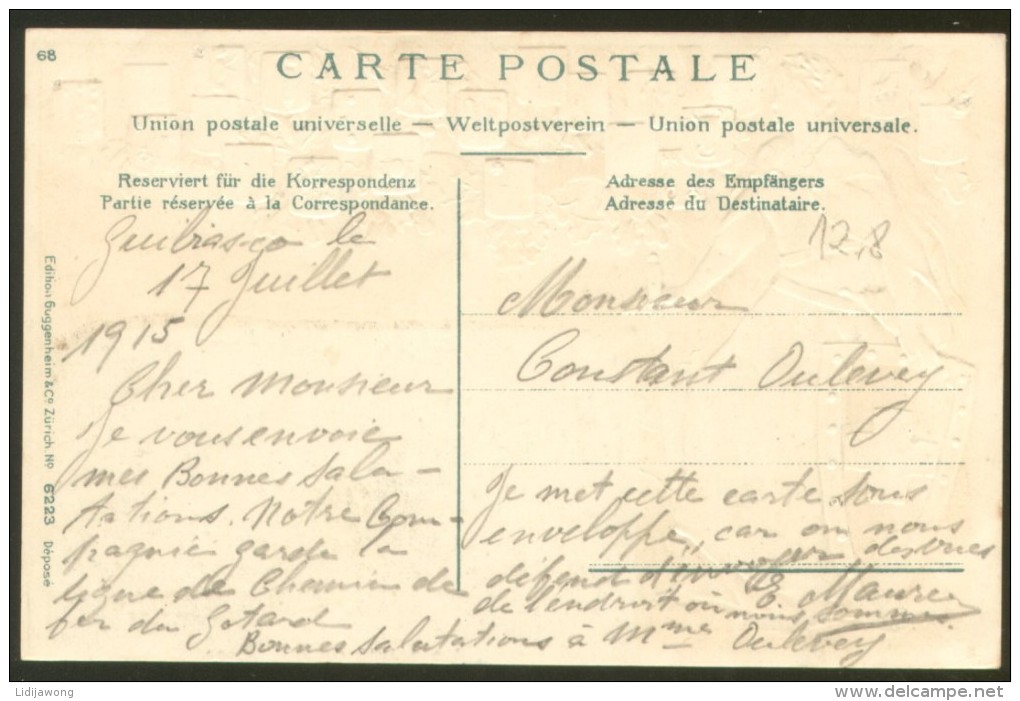 68
CARTE POSTALE
Union postale universelle — Weltpostverein — Union postale universale.
Reserviert für die Korrespondenz
Partie réservée à la Correspondance.
Adresse des Empfängers
Adresse du Destinataire.
12,8
Guibiasco le
17 Juillet
1915
Cher Monsieur
Je vous envoie
mes Bonnes Salu-
tations. Notre Com-
pagnie garde la
ligne de Chemin de
fer du Gotard
Bonnes Salutations à Mme Oulevey
Monsieur
Constant Oulevey
Je met cette carte sous
enveloppe, car on nous
défend d'envoyer des vues
de l'endroit où nous sommes
E. Maurer
Edition Guggenheim & Co Zürich. No 6223 Déposé
Lidijawong
http://www.delcampe.net